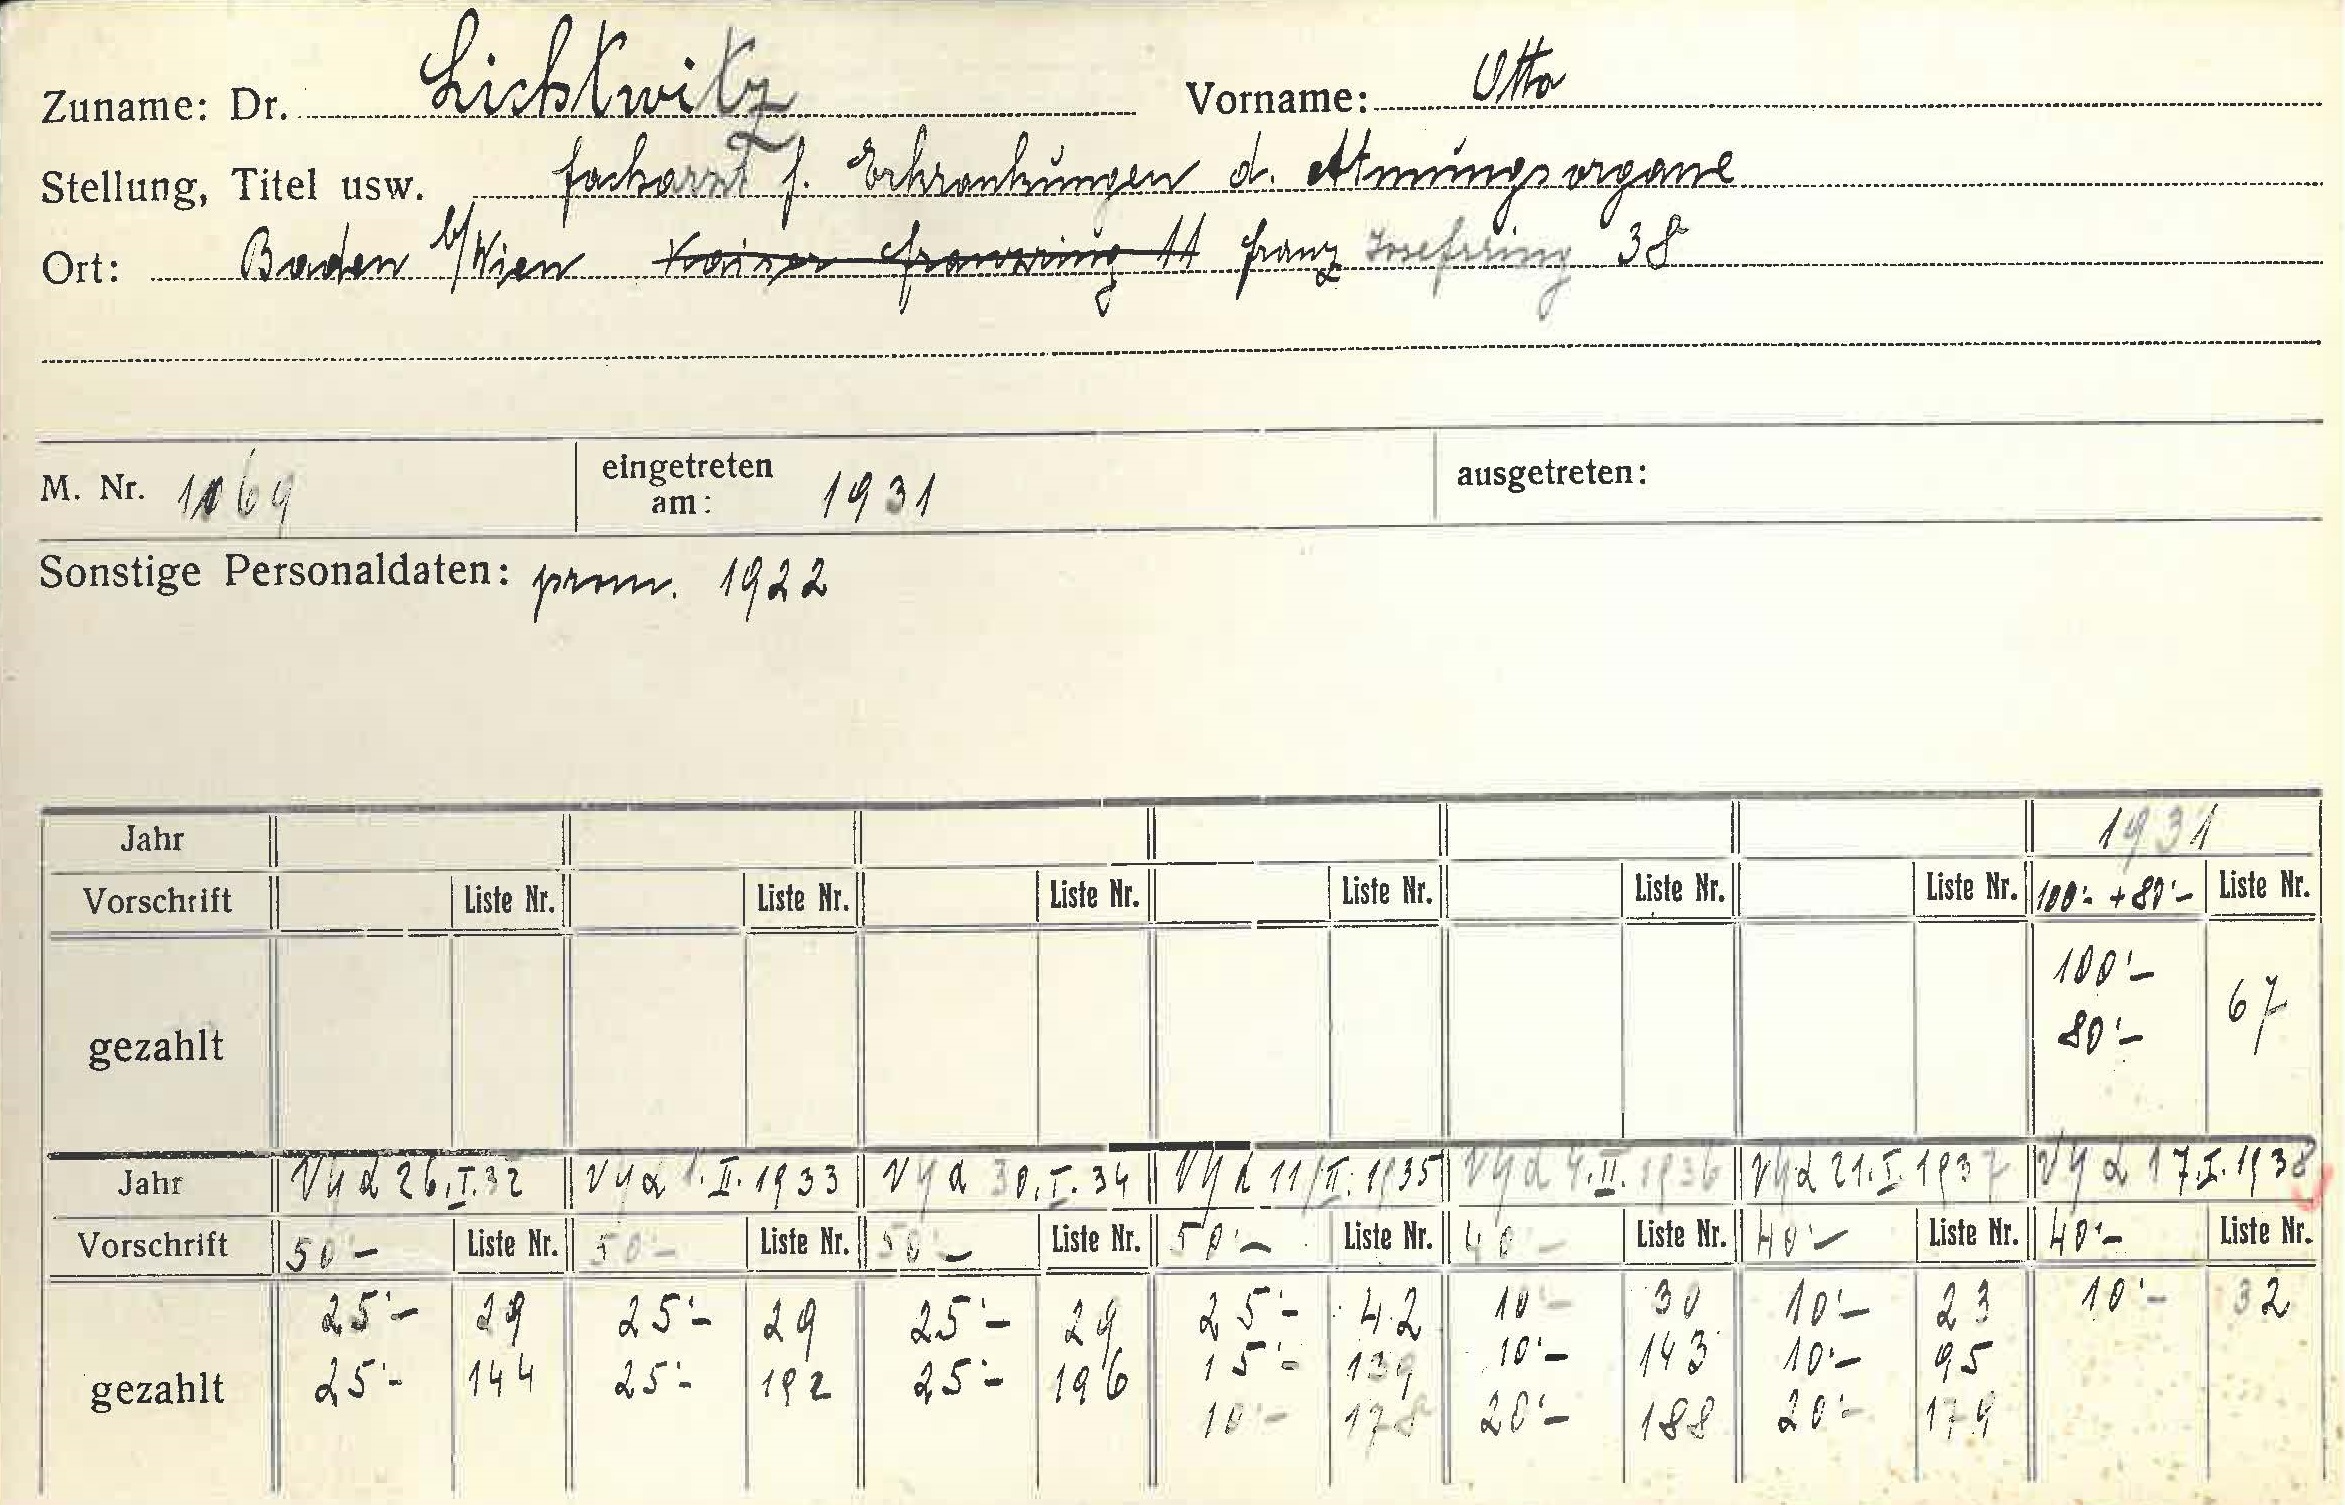 Zuname: Dr. Lichtwitz Vorname: Otto
Stellung, Titel usw. Facharzt f. Erkrankungen d. Atmungsorgane
Ort: Baden b/Wien Kaiser Franzring 11 Franz Josefring 38
M. Nr. 1069 eingetreten am: 1931 ausgetreten:
Sonstige Personaldaten: prom. 1922
Jahr 1931
Vorschrift Liste Nr. Liste Nr. Liste Nr. Liste Nr. Liste Nr. Liste Nr. 100'- + 80'- Liste Nr.
gezahlt 100'- 67
80'-
Jahr 26.I.32 1.II.1933 30.I.34 11/II.1935 4.II.1936 21.I.1937 17.I.1938
Vorschrift 50'- Liste Nr. 50'- Liste Nr. 50'- Liste Nr. 50'- Liste Nr. 40'- Liste Nr. 40'- Liste Nr. 40'- Liste Nr.
gezahlt 25'- 29 25'- 29 25'- 29 25'- 42 10'- 30 10'- 23 10'- 32
25'- 144 25'- 192 25'- 196 15'- 139 10'- 143 10'- 95
10'- 178 20'- 188 20'- 179